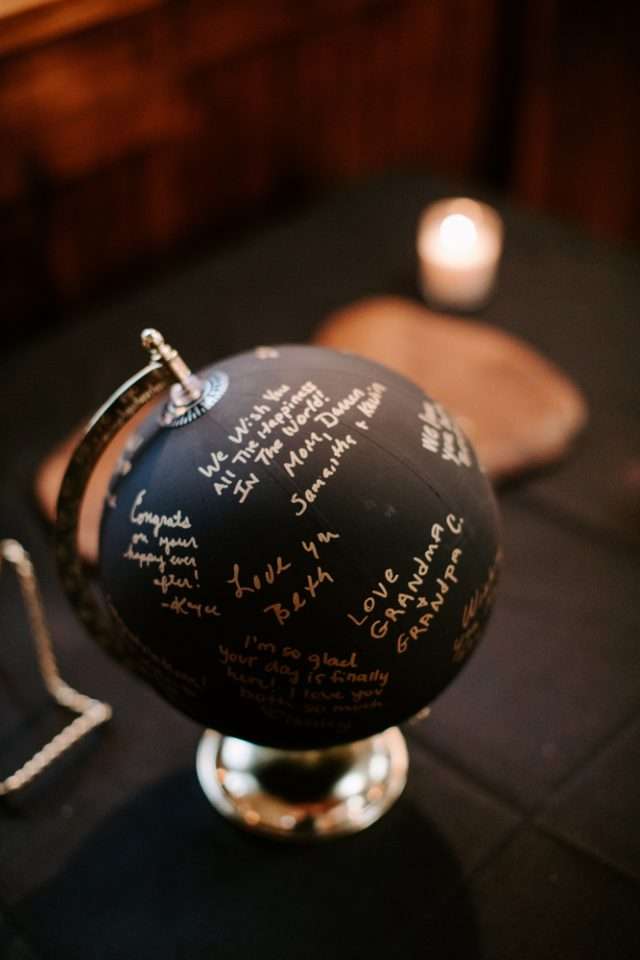 We Wish You
All The Happiness
In The World!
Mom, Darren,
Samantha + Kevin
Congrats
on your
happy ever
after!
-Kayce
Love you
Beth
LOVE
GRANDMA
+
GRANDPA C.
I'm so glad
your day is finally
here! I love you
both so much